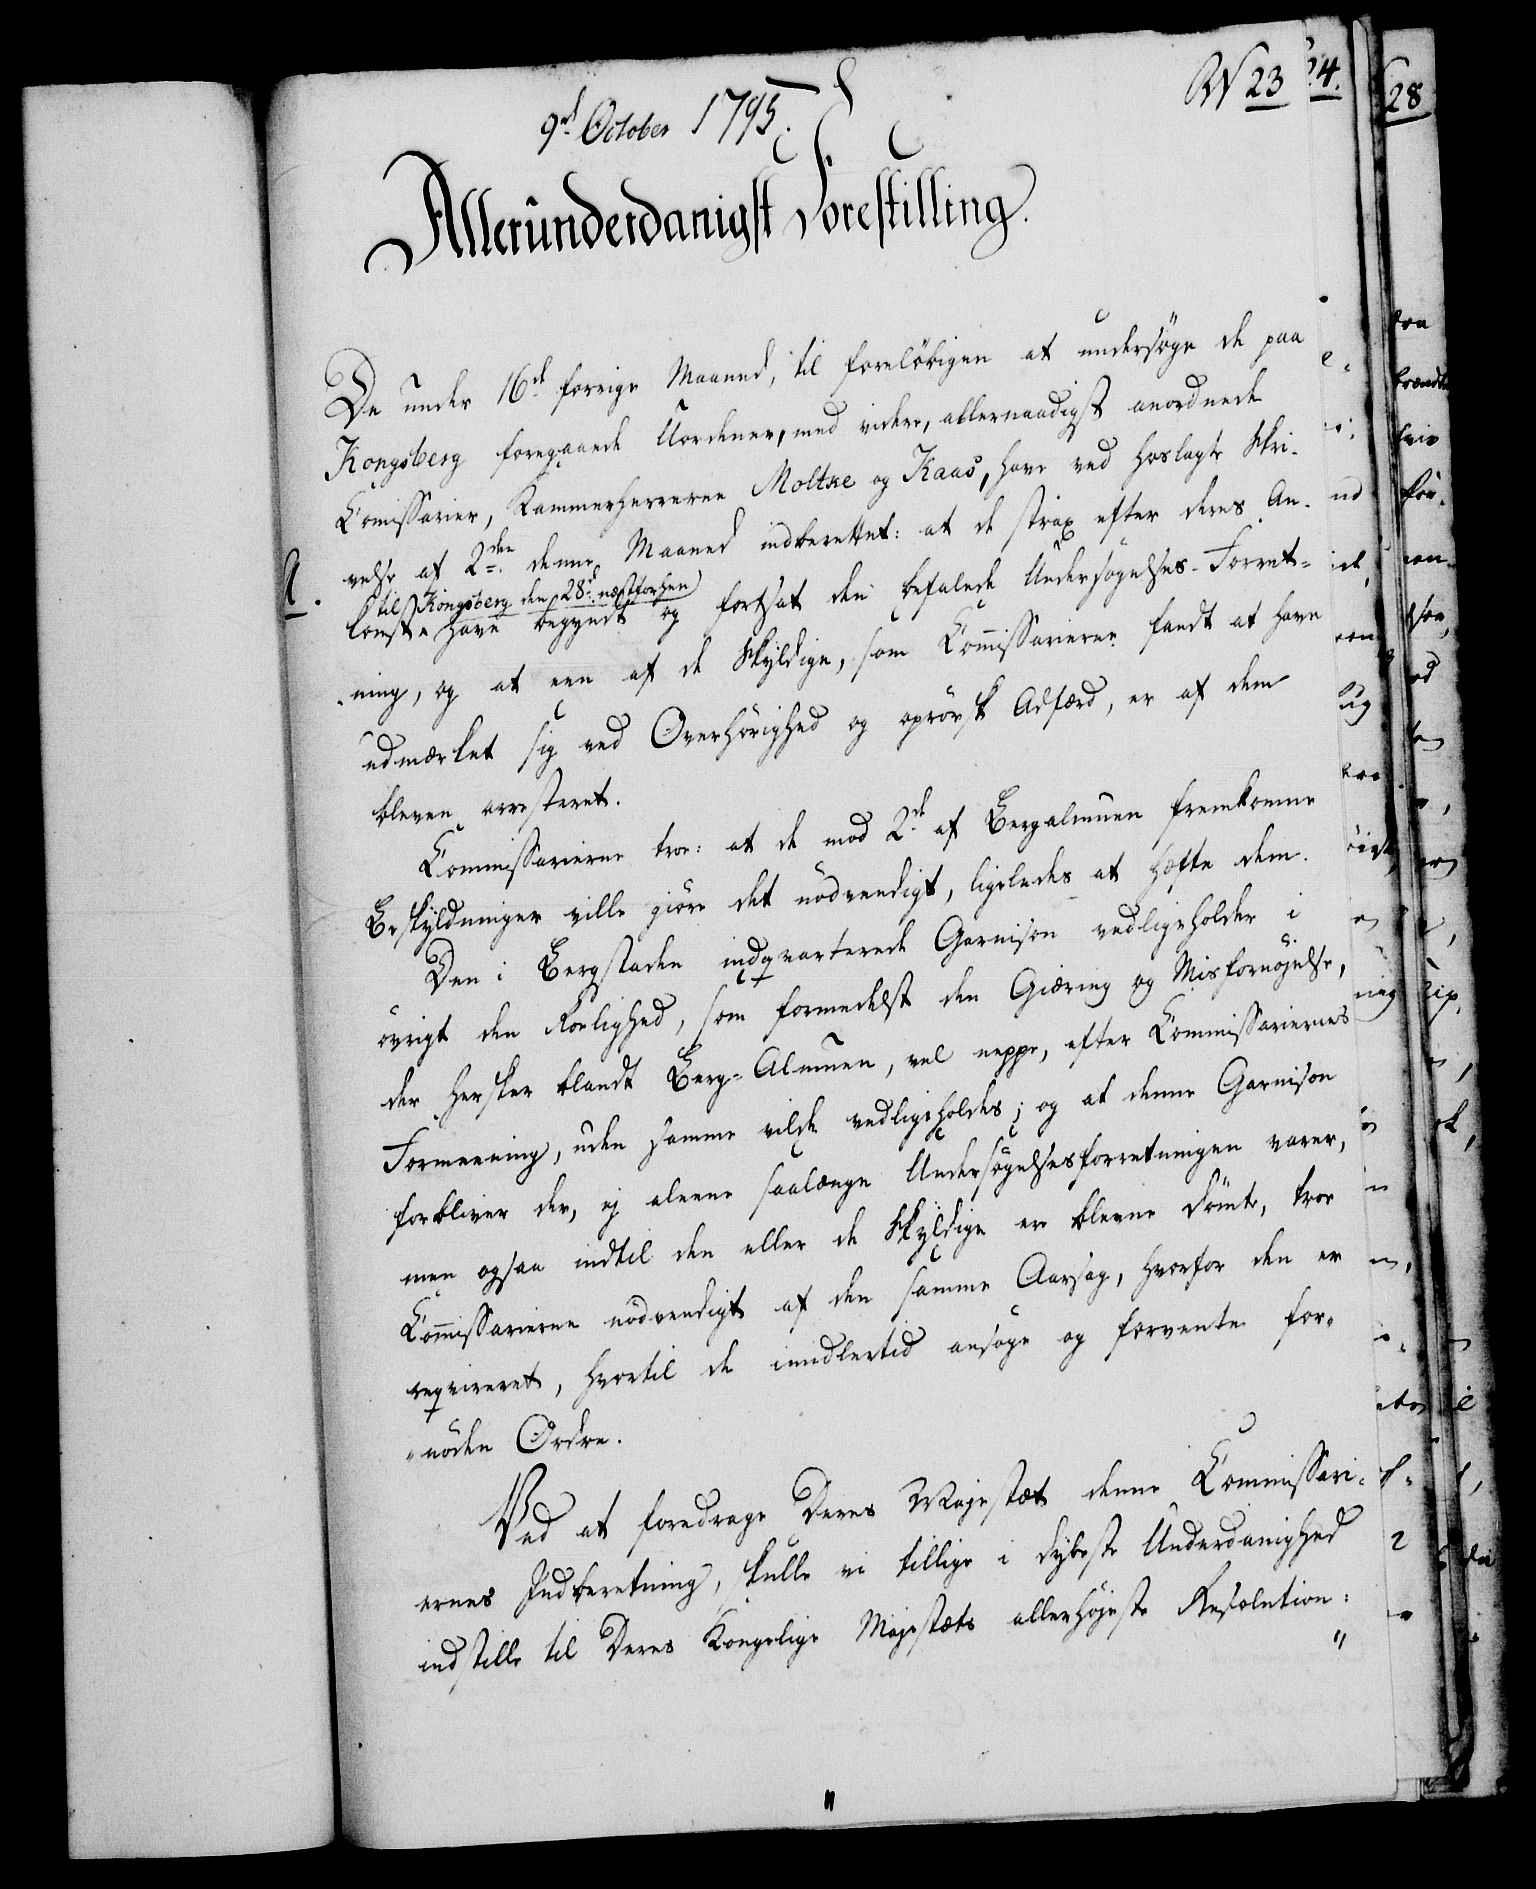 9d. October 1795.
RN 23
24.
28
Allerunderdanigst Forestilling.
De under 16de forrige Maaned, til foreløbigen at undersøge de paa
Kongsberg foregaaede Uordener, med videre, allernaadigst anordnede
Comissarier, Kammerherrerne Moltke og Kaas, have ved hoslagte Skri-
A. velse af 2den denne Maaned indberettet: at de strax efter deres An-
til Kongsberg den 28d. næstforhen
komst have begyndt og fortsat den befalede Undersøgelses-Forret-
ning, og at een af de Skyldige, som Comissarierne fandt at have
udmærket sig ved Overhørighed og oprørsk Adfærd, er af dem
bleven arresteret.
Commissarierne troe: at de mod 2de af Bergalmuen fremkomne
Beskyldninger ville giøre det nødvendigt, ligeledes at hæfte dem.
Den i Bergstaden indqvarterede Garnison vedligeholder i
øvrigt den Roelighed, som formedelst den Giæring og Misfornøjelse,
der hersker blandt Berg-Almuen, vel neppe, efter Commissariernes
Formeening, uden samme vilde vedligeholdes; og at denne Garnison
forbliver der, ej aleene saalænge Undersøgelsesforretningen varer,
men ogsaa indtil den eller de Skyldige ere blevne dømte, troe
Comissarierne nødvendigt af den samme Aarsag, hvorfor den er
reqvireret, hvortil de imidlertid ansøge og forvente for-
nøden Ordre.
Ved at foredrage Deres Majestæt denne Commissari-
ernes Indberetning, skulle vi tillige i dybeste Underdanighed
indstille til Deres Kongelige Majestæts allerhøjeste Resolution: